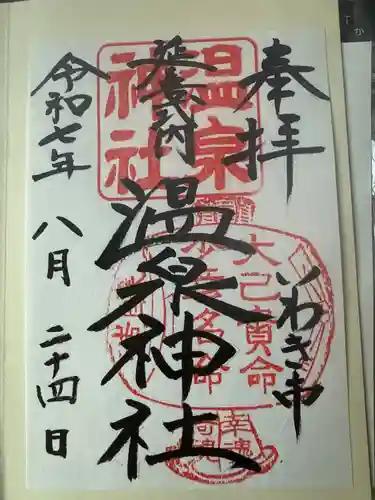 奉拝
いわき市
延喜式内
温泉神社
令和七年
八月
二十四日
温泉
神社
大己貴命
少彦名命
幸魂
奇魂